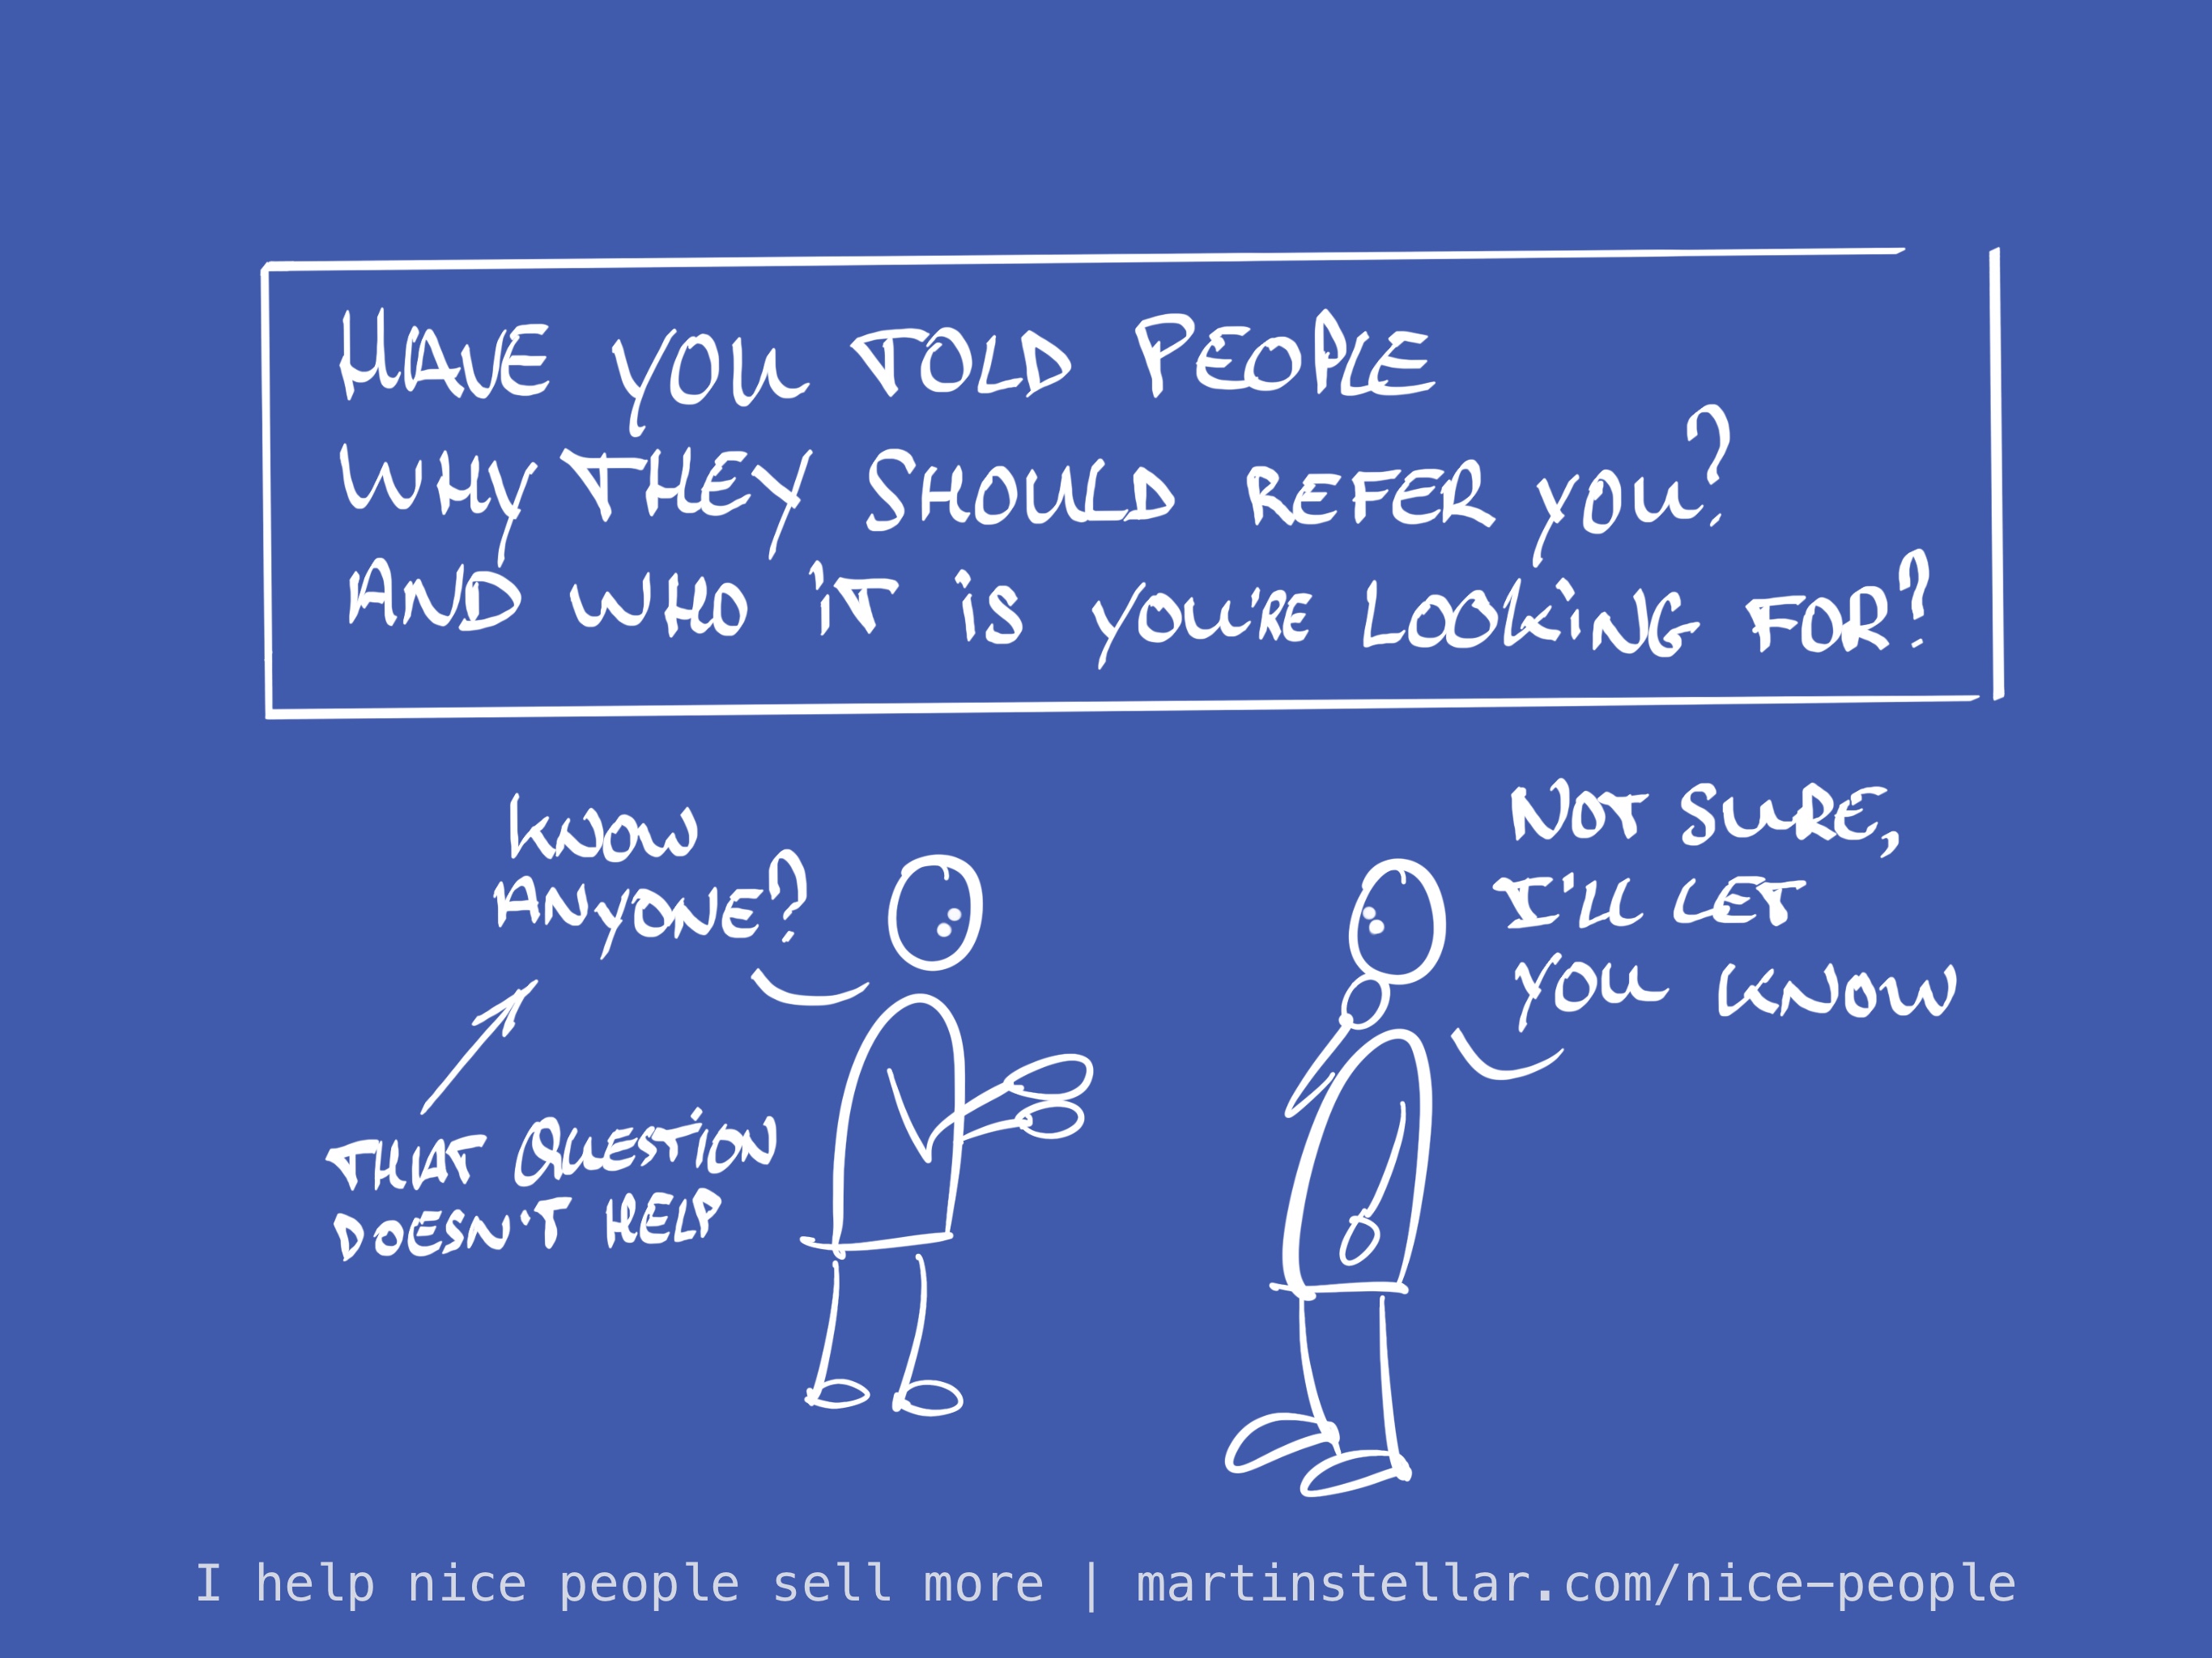 HAVE YOU TOLD PEOPLE
WHY THEY SHOULD REFER YOU?
AND WHO IT IS YOU'RE LOOKING FOR?
KNOW
ANYONE?
NOT SURE,
I'LL LET
YOU KNOW
THAT QUESTION
DOESN'T HELP
I help nice people sell more | martinstellar.com/nice-people